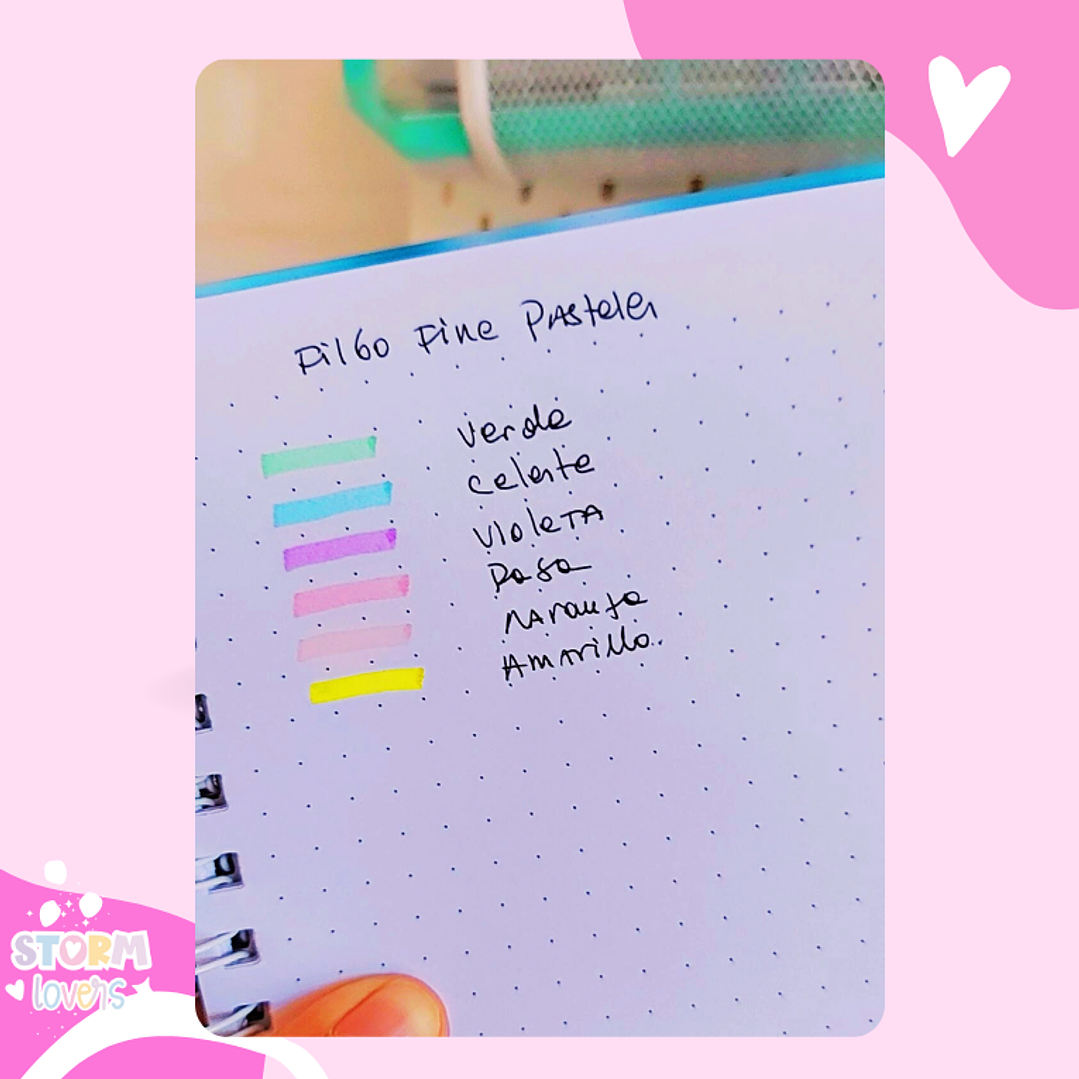 Filgo Fine Pasteles
Verde
Celeste
Violeta
Rosa
Naranja
Amarillo.
STORM
lovers